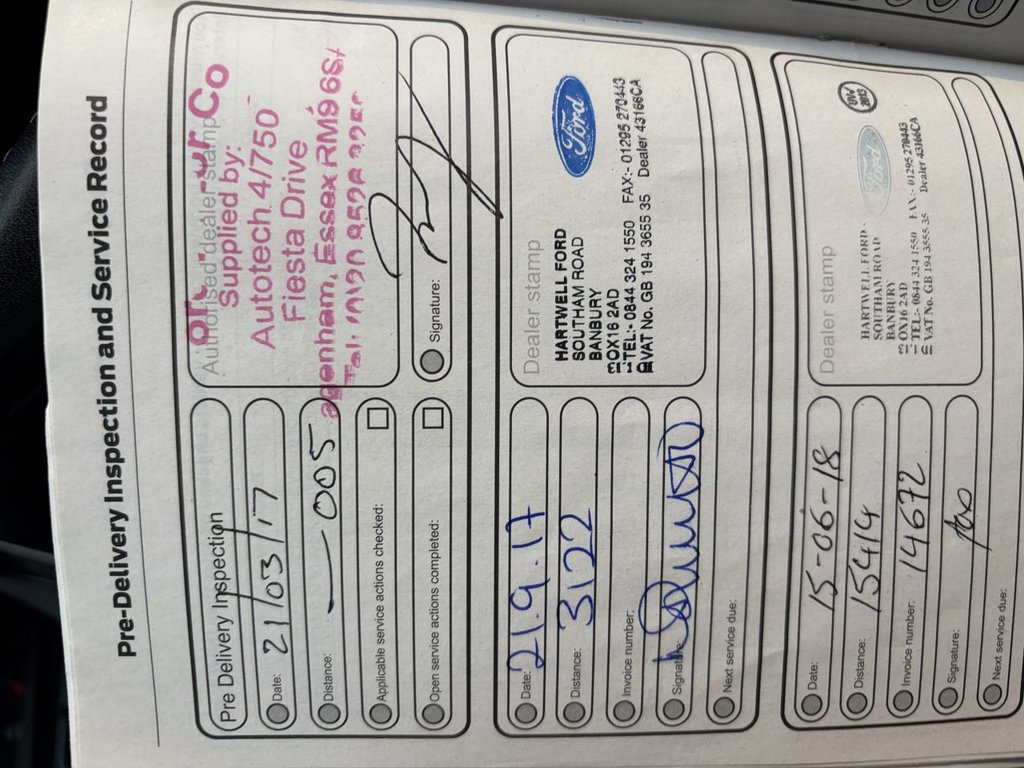 Pre-Delivery Inspection and Service Record
Pre Delivery Inspection
Date: 21/03/17
Distance: — 005
Applicable service actions checked:
Open service actions completed:
Authorised dealer stamp
Supplied by:
Autotech 4/750
Fiesta Drive
agenham, Essex RM9 6S
Signature:
Date: 21.9.17
Distance: 3122
Invoice number:
Signature:
Next service due:
Dealer stamp
Ford
HARTWELL FORD
SOUTHAM ROAD
BANBURY
OX16 2AD
TEL:- 0844 324 1550 FAX:- 01295 270443
VAT No. GB 194 3655 35 Dealer 43166CA
Date: 15-06-18
Distance: 15414
Invoice number: 14672
Signature:
Next service due:
Dealer stamp
Ford
HARTWELL FORD
SOUTHAM ROAD
BANBURY
OX16 2AD
TEL:- 0844 324 1550 FAX:- 01295 270443
VAT No. GB 194 3555 35 Dealer 43166CA